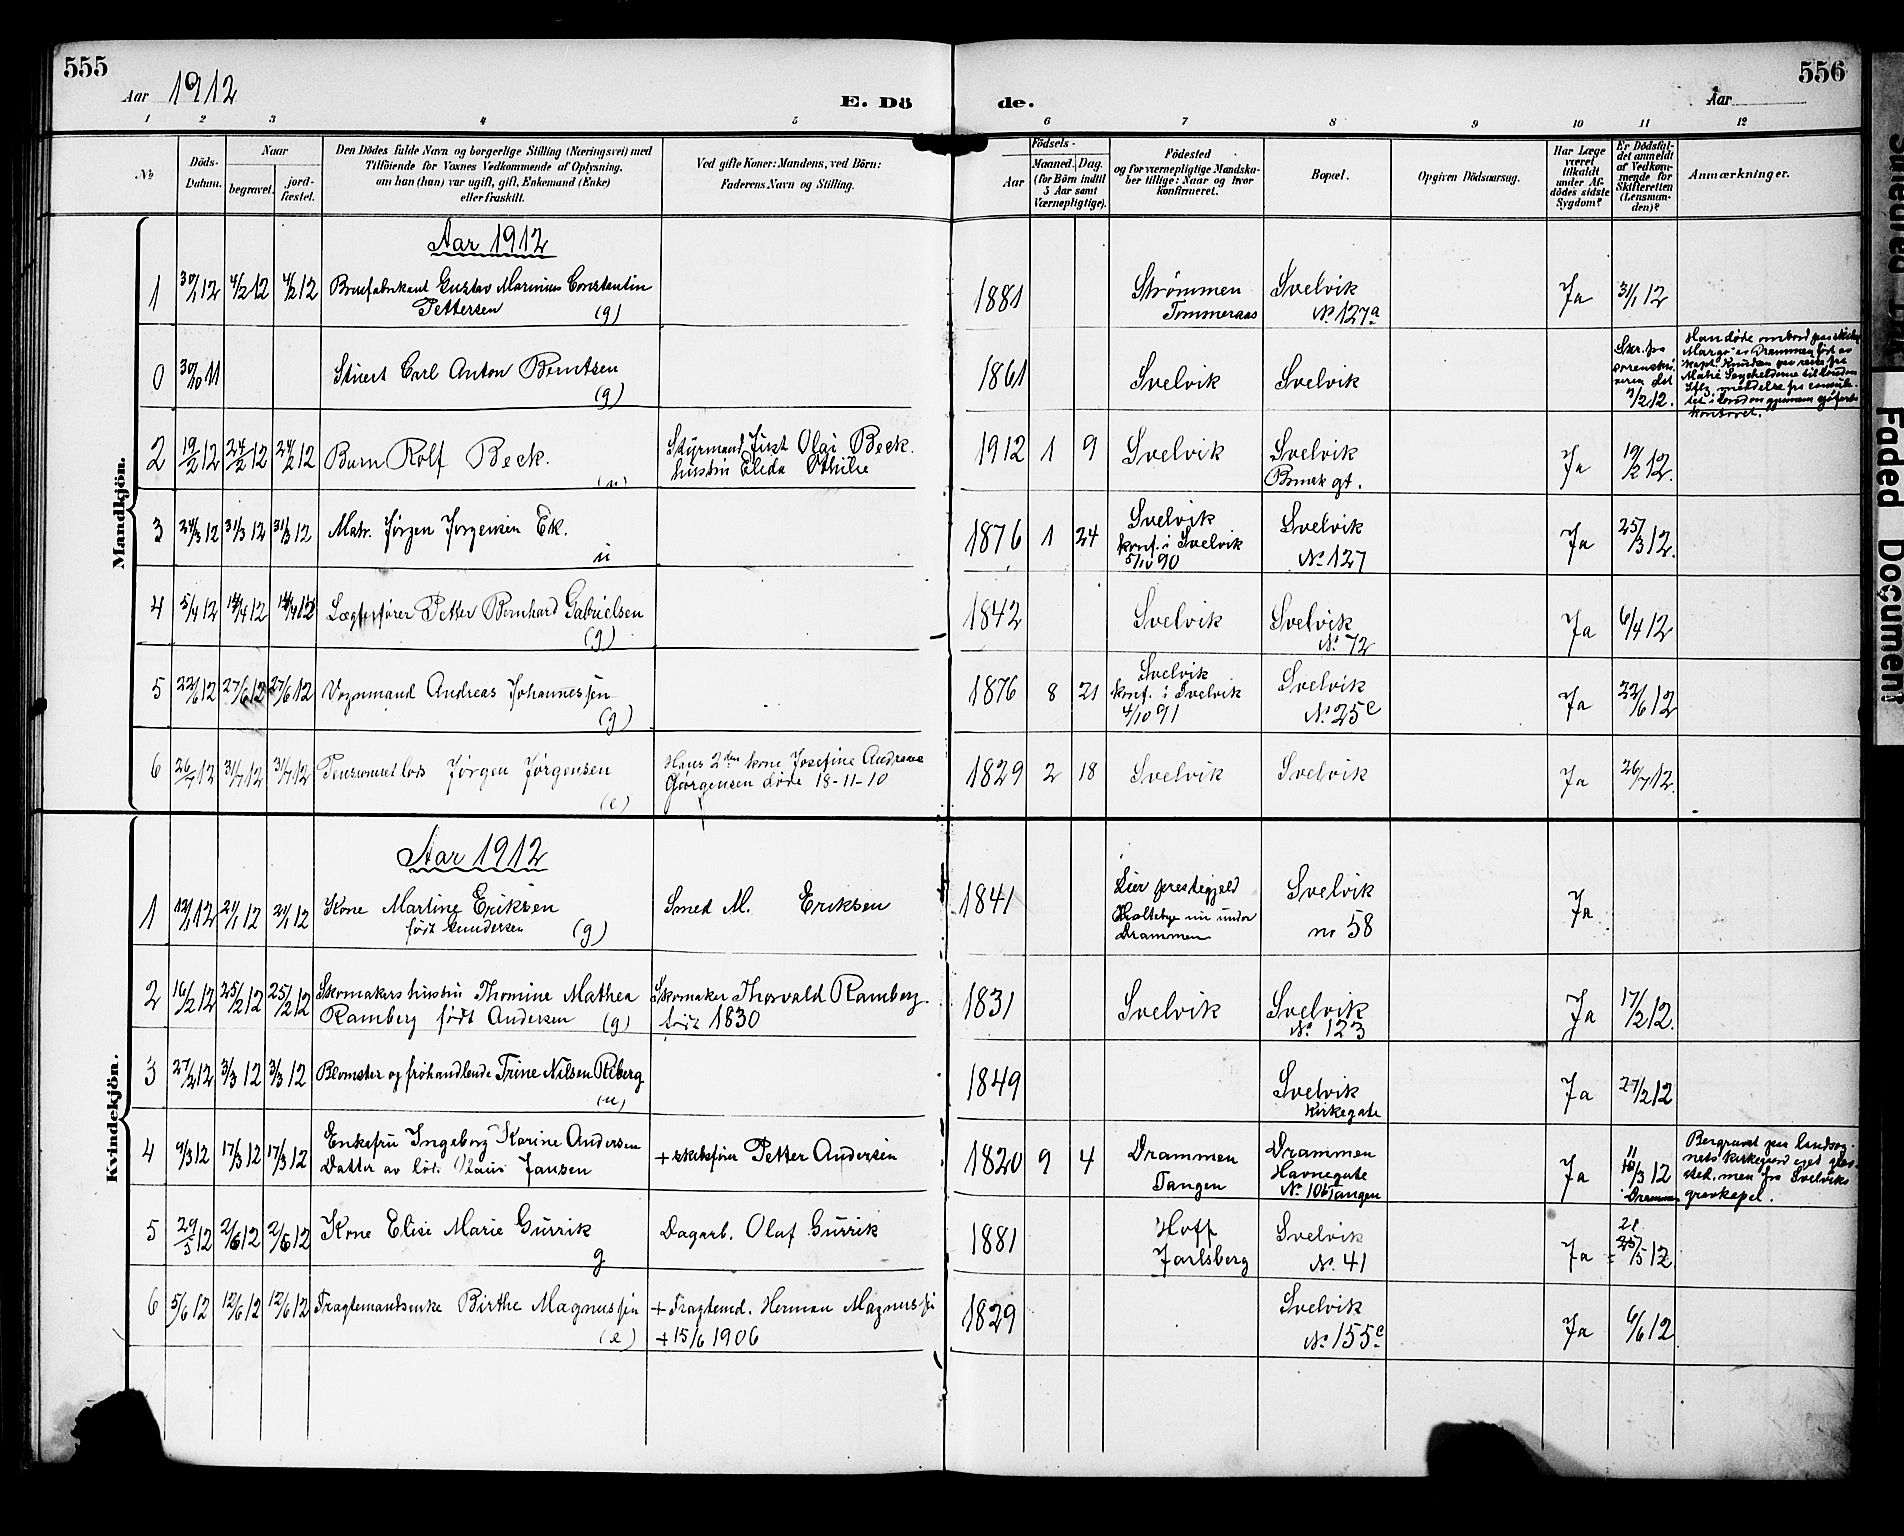 555
556
Aar 1912
E. Dö
de.
Aar
1 2 3 4 5 6 7 8 9 10 11 12
No
Döds-
Datum.
Naar
begravet.
jord-
fæstet.
Den Dödes fulde Navn og borgerlige Stilling (Næringsvei) med
Tilföiende for Voxnes Vedkommende af Oplysning,
om han (hun) var ugift, gift, Enkemand (Enke)
eller fraskilt.
Ved gifte Koner: Mandens, ved Börn:
Faderens Navn og Stilling.
Födsels-
Aar
Maaned. Dag.
(for Börn indtil
5 Aar samt
Værnepligtige).
Födested
og for værnepligtige Mandska-
ber tillige: Naar og hvor
konfirmeret.
Bopæl.
Opgiven Dödsaarsag.
Har Læge
været
tilkaldt
under Af-
dödes sidste
Sygdom?
Er Dödsfal-
det anmeldt
af Vedkom-
mende for
Skifteretten
(Lensman-
den)?
Anmærkninger.
Mandkjön.
Aar 1912
1 30/1 12 4/2 12 4/2 12 Brusfabrikant Gustav Marinius Constantin
Pettersen (g)
1881 Strømmen
Tommeraas
Svelvik
No 127a
Ja 31/1 12
0 30/10 11 Stuert Carl Anton Berntsen
(g)
1861 Svelvik Svelvik
Skr. fra
sorenskri-
veren dat
9/2 12.
Han døde ombord paa
Margo av Drammen ført av
kapt. Knudsen paa reise fra
Mahé Seychellerne til London
Iflg. meddelse fra consula-
tet i London gjennem
kontoret.
2 19/2 12 24/2 12 24/2 12 Barn Rolf Beck.
(u)
Styrmand Just Olai Beck.
hustru Elida Othilie
1912 1 9 Svelvik Svelvik
Bruak gt.
Ja 19/2 12.
3 24/3 12 31/3 12 31/3 12 Matr. Jørgen Jørgensen Ek.
u
1876 1 24 Svelvik
konf. i Svelvik
5/10 90
Svelvik
No 127
Ja 25/3 12.
4 5/4 12 14/4 12 14/4 12 Lægterfører Petter Bernhard Gabrielsen
(g)
1842 Svelvik Svelvik
No 72
Ja 6/4 12
5 22/6 12 27/6 12 27/6 12 Vognmand Andreas Johannessen
(g)
1876 8 21 Svelvik
konf. i Svelvik
4/10 91
Svelvik
No 25c
Ja 22/6 12
6 26/7 12 31/7 12 31/7 12 Pensioneret lods Jørgen Jørgensen
(e)
Hans 2den kone Josefine Andrea
Gjørgensen døde 18-11-10
1829 2 18 Svelvik Svelvik Ja 26/7 12.
Kvindekjön.
Aar 1912
1 12/1 12 21/1 12 21/1 12 Kone Martine Eriksen
født Gundersen (g)
Smed M. Eriksen
1841 Lier prestegjeld
nu under
Drammen
Svelvik
no 58
Ja
2 16/2 12 25/2 12 25/2 12 Skomakers hustru Thomine Mathea
Ramberg født Andersen (g)
Skomaker Thorvald Ramberg
født 1830
1831 Svelvik Svelvik
No 123
Ja 17/2 12.
3 27/2 12 3/3 12 3/3 12 Blomster og frøhandlende Trine Nilsen Riberg
(u)
1849 Svelvik
Kirkegate
Ja 27/2 12
4 9/3 12 17/3 12 17/3 12 Enkefru Ingeborg Karine Andersen
Datter av Claus Jansen
+ skibsfører Petter Andersen
1820 9 4 Drammen
Tangen
Drammen
Havnegate
No 106 Tangen
Ja 11
/3 12
i Drammen
Bergravet paa landsog-
nets kirkegaard eget grav-
sted, men fra Svelviks
gravkapel.
5 29/5 12 2/6 12 2/6 12 Kone Elise Marie Gurrik
g
Dagarb. Olaf Gurrik
1881 Hoff
Jarlsberg
Svelvik
No 41
Ja /5 12
6 5/6 12 12/6 12 12/6 12 Fragtemandsenke Birthe Magnussen
(e)
+ Fragtemd. Herman Magnussen
+ 15/6 1906
1829 Svelvik
No 155c
Ja 6/6 12
Faded Document